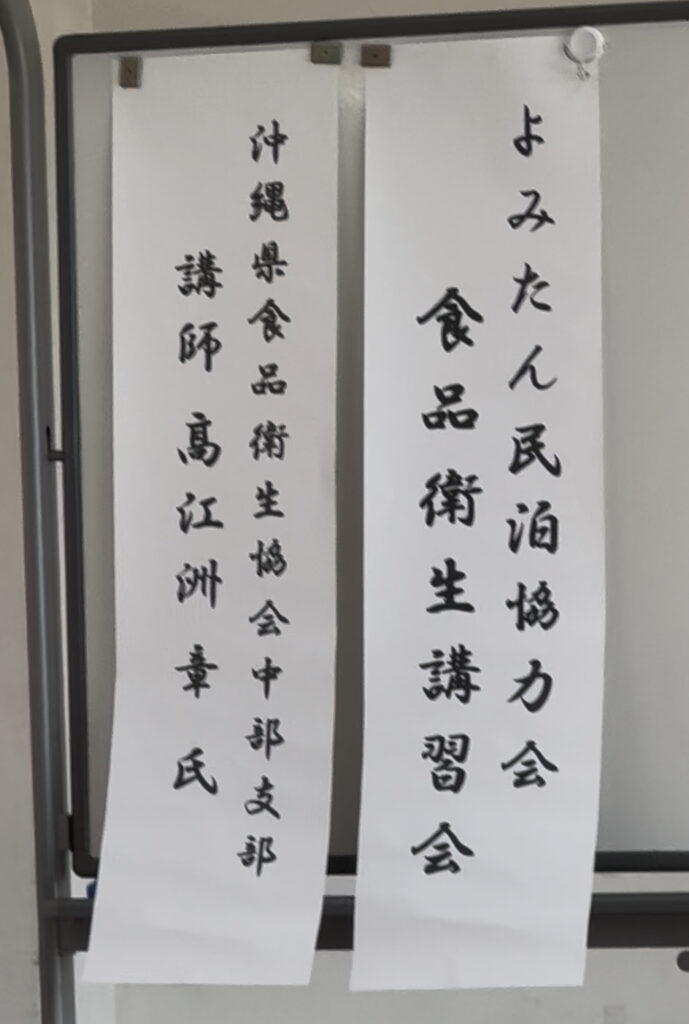 よみたん民泊協力会
食品衛生講習会
沖縄県食品衛生協会中部支部
講師 高江洲 章 氏